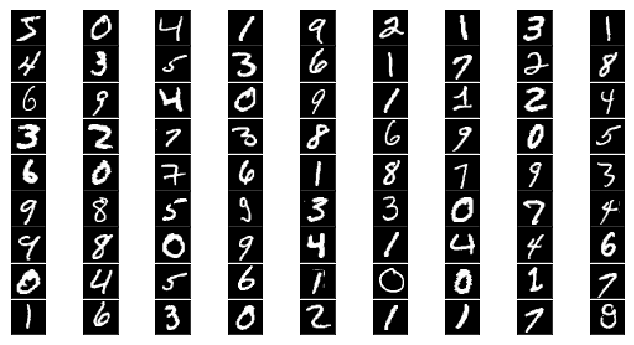 5 0 4 1 9 2 1 3 1
4 3 5 3 6 1 7 2 8
6 9 4 0 9 1 1 2 4
3 2 7 3 8 6 9 0 5
6 0 7 6 1 8 7 9 3
9 8 5 9 3 3 0 7 4
9 8 0 9 4 1 4 4 6
0 4 5 6 1 0 0 1 7
1 6 3 0 2 1 1 7 8